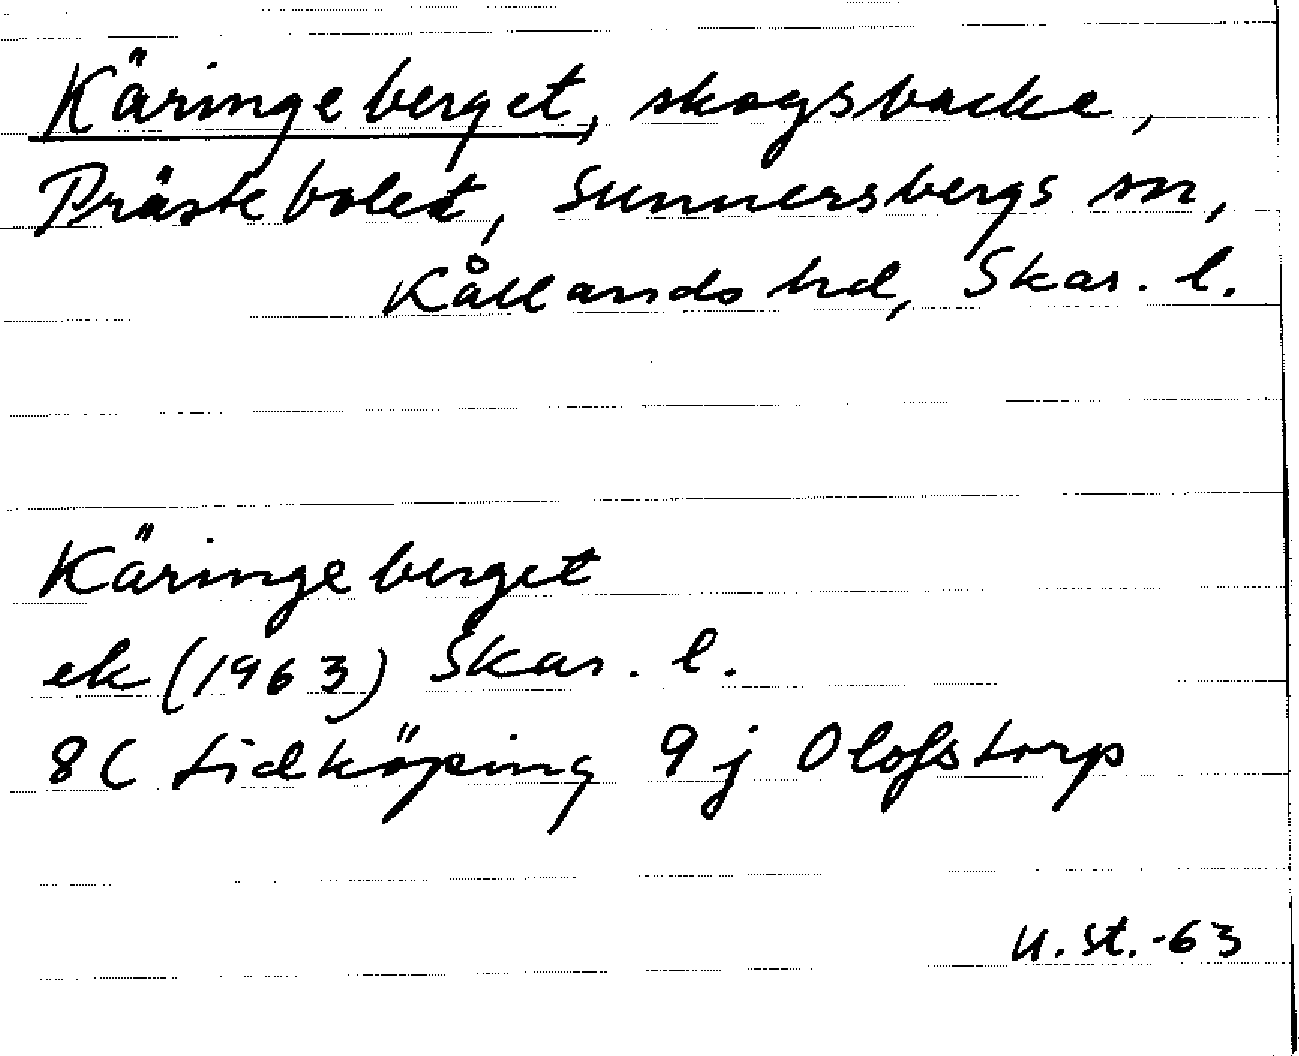 Käringeberget, skogsbacke,
Prästebolet, Sunnersbergs sn,
Kållands hd, Skar. l.
Käringeberget
ek (1963) Skar. l.
8C Lidköping 9j Olofstorp
U. St. -63